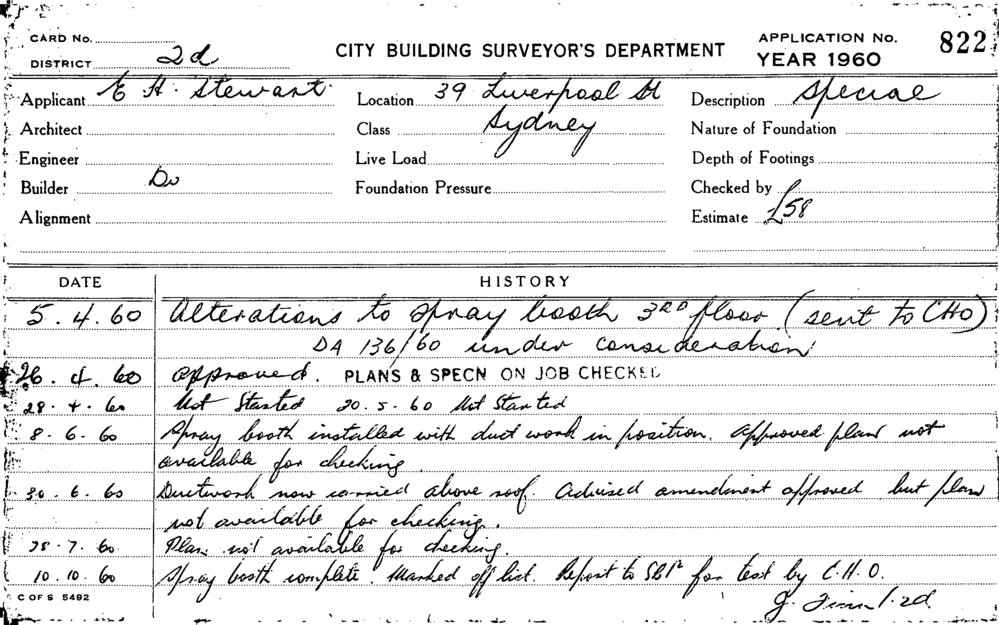 CARD No.
DISTRICT 2d
CITY BUILDING SURVEYOR'S DEPARTMENT
APPLICATION No. 822
YEAR 1960
Applicant E H. Stewart
Location 39 Liverpool St
Description Special
Architect
Class Sydney
Nature of Foundation
Engineer
Live Load
Depth of Footings
Builder Do
Foundation Pressure
Checked by
Alignment
Estimate £58
DATE HISTORY
5.4.60 Alterations to spray booth 3RD floor (sent to CHO)
DA 136/60 under consideration
26.4.60 approved. PLANS & SPECN ON JOB CHECKED
28.4.60 Not Started 20.5.60 Not Started
8.6.60 Spray booth installed with duct work in position. Approved plans not
available for checking.
30.6.60 Ductwork now carried above roof. Advised amendment approved but plans
not available for checking.
28.7.60 Plans not available for checking.
10.10.60 Spray booth complete. Marked off list. Report to for test by C.H.O.
C OF S 5492